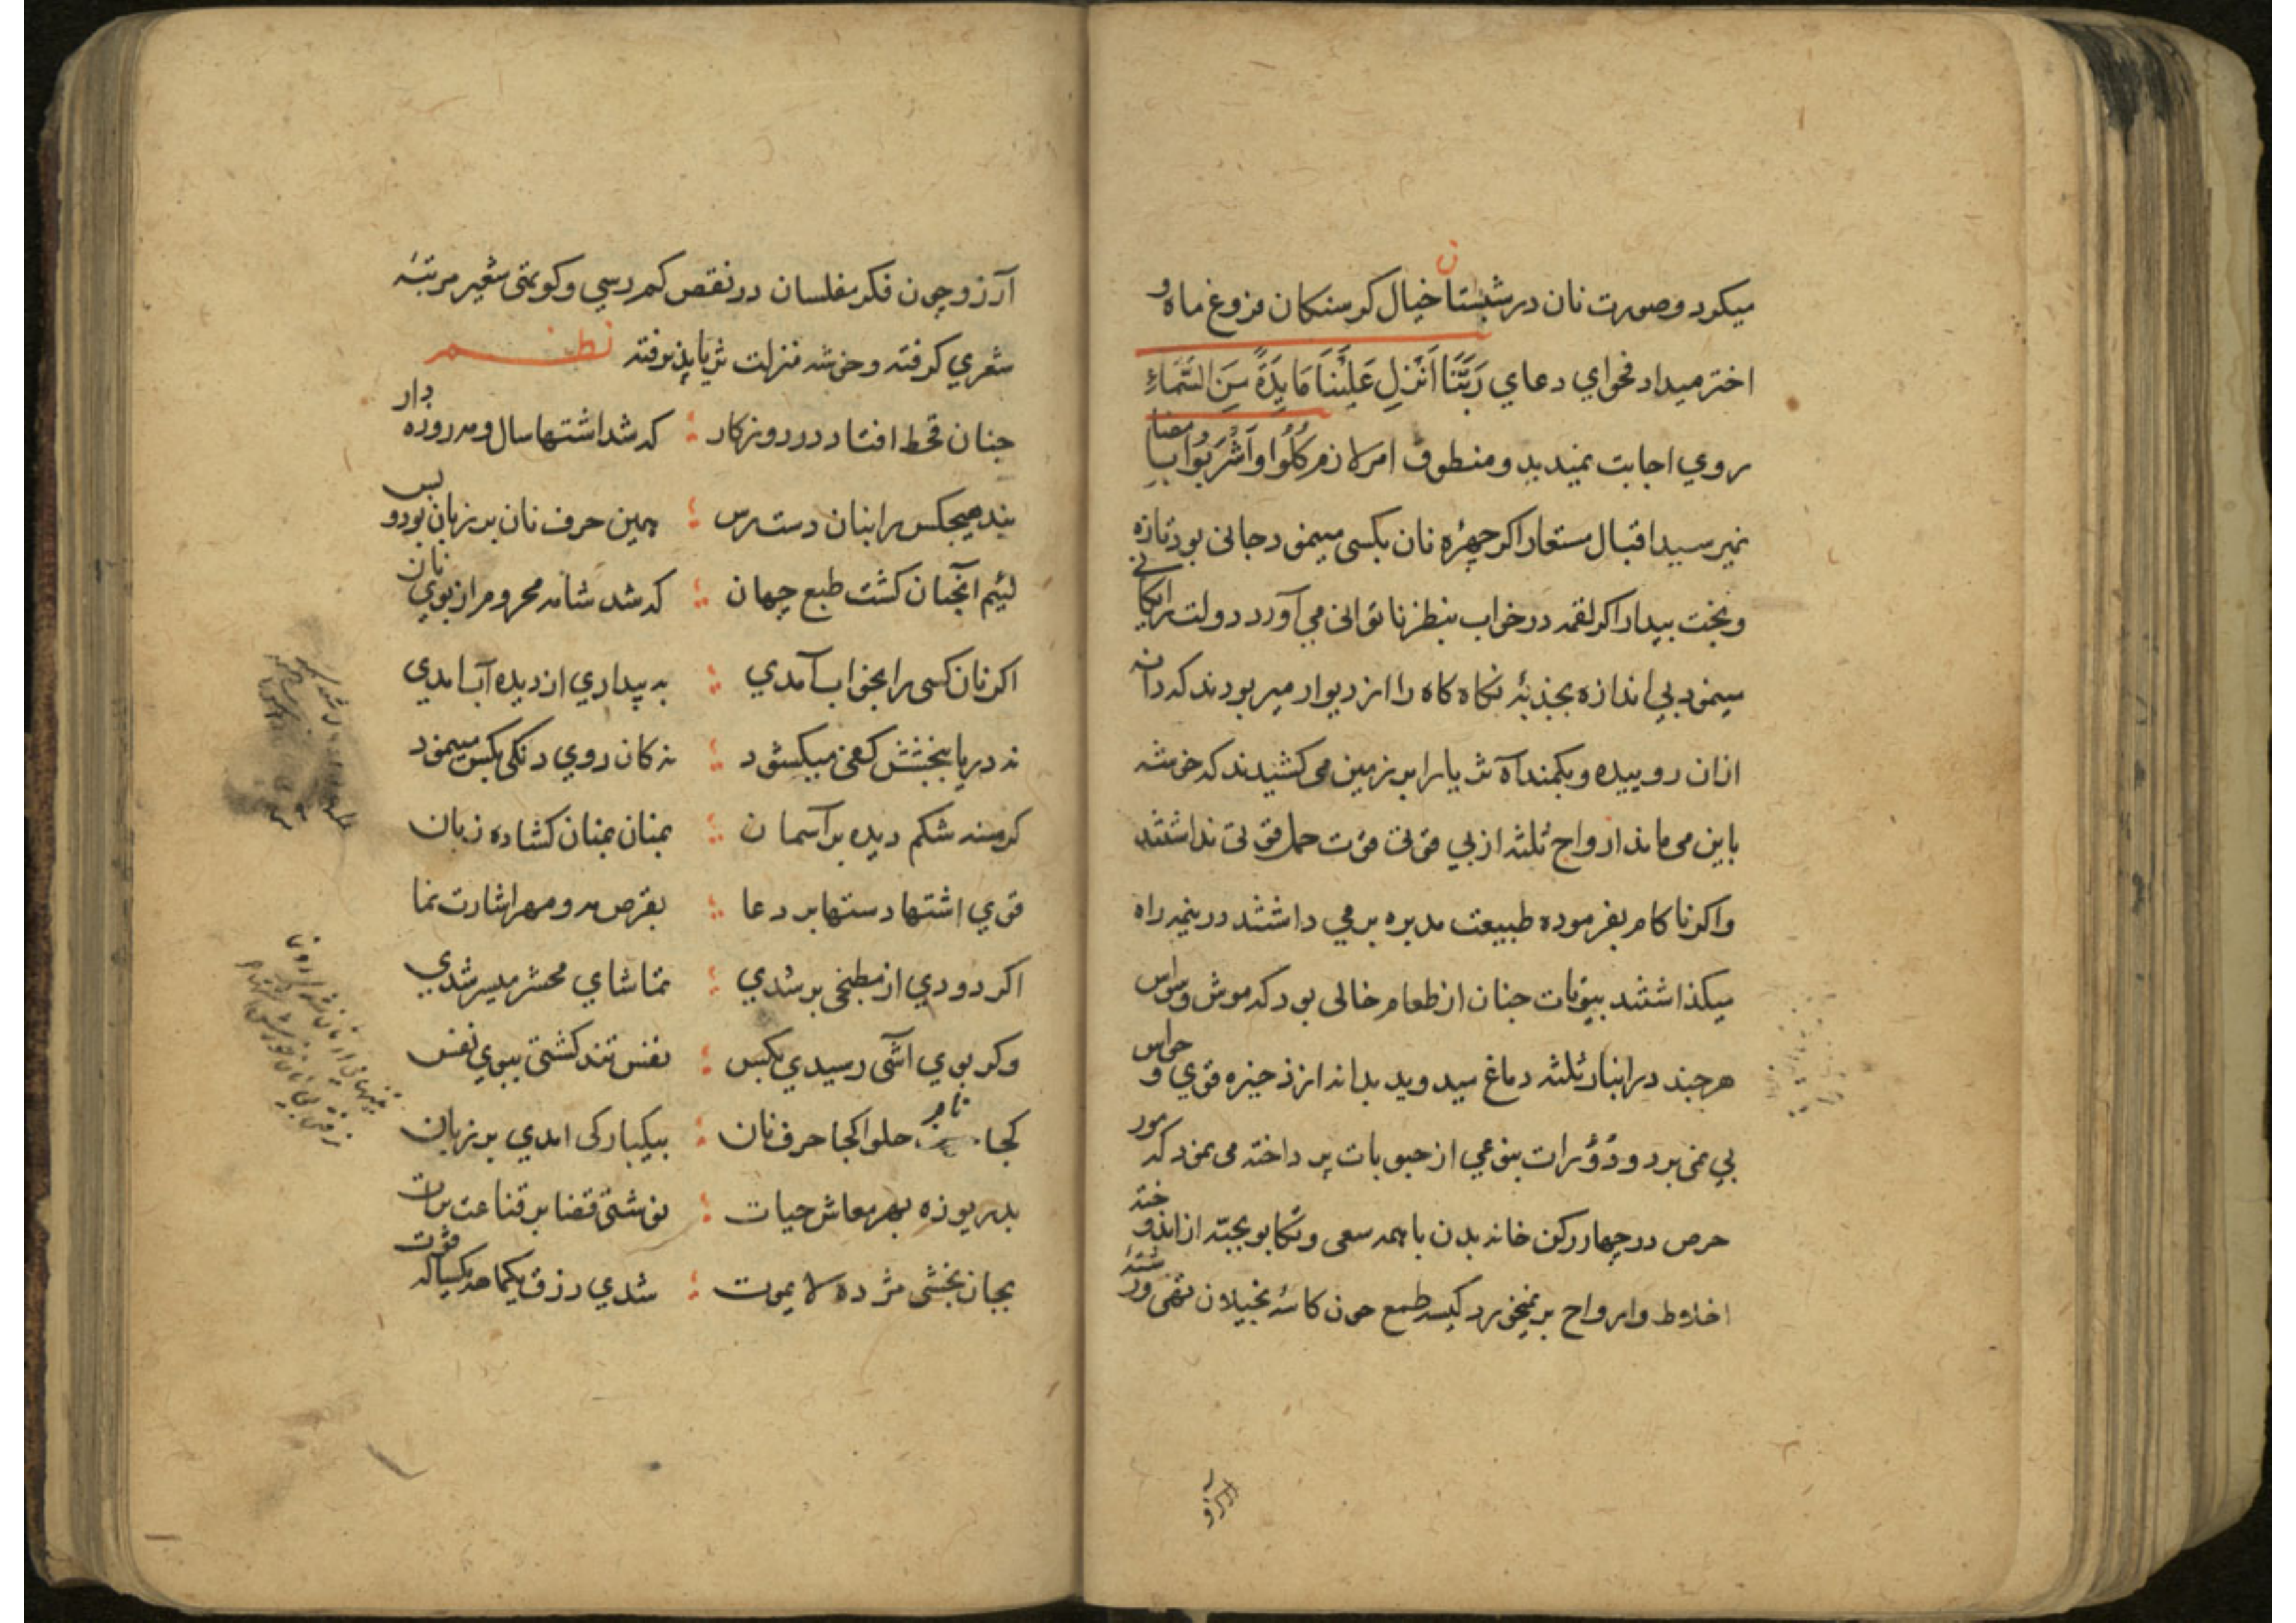 میکرد و صورت نان در شبستان خیال کرسنکان فروغ ماه و
اختر میداد فحوای دعای رَبَّنَا اَنْزِلِ عَلَیْنَا مَایِدَةً مِنَ السَّمَاءِ
روی اجابت نمیدید و منطوق امر لازم کُلُوا وَاشْرَبُوا بامضا
نمیرسید اقبال مستعار اکر چهرهٔ نان بکسی مینمود جانی بود تازه
و بخت بیدار اکر لقمه در خواب بنظر ناتوانی می آورد دولت رایکانی
مینمود بی اندازه بجذبهٔ نکاه کاه را از دیوار میربودند که دانه
ازان روییده و بکمند آه ثریا را بر زمین می کشیدند که خوشه
باین می ماند ارواح ثلثه از بی قوتی قوت حمل قوتی نداشتند
و اکر ناکام بفرموده طبیعت مدبره بر می داشتند در نیمه راه
میکذاشتند بیوتات چنان از طعام خالی بود که موش وسواس
هر چند در انبار ثلثه دماغ میدوید بدانه از ذخیره قوی و حواس
پی نمی برد و دوّرات بنوعی از حبوبات پرداخته می نمود که مور
حرص در چهار رکن خانه بدن با همه سعی و تکاپو بحبّه از اندوخته
اخلاط و ارواح بر نمیخورد کیسه طمع چون کاسهٔ بخیلان تهی و رشتهٔ
آرزو
آرزو چون فکر مفلسان در نقص کم رسی و کوتهی شعیر مرتبهٔ
شعری کرفته و خوشه منزلت ثریا پذیرفته نظم
چنان قحط افتاد در روزکار که شد اشتها سال و مه روزه دار
نبد هیچکس را بنان دست رس همین حرف نان بر زبان بود و بس
لئیم آنچنان کشت طبع جهان که شد شامه محروم از بوی نان
اکر نان کسی را بخواب آمدی به بیداری از دیده آب آمدی
نه دریا ببخشش کفی میکشود نه کان روی دنکی بکس مینمود
کرسنه شکم دیده بر آسمان بمنان بمنان کشاده زبان
قوی اشتها دستها بر دعا بقرص مه و مهر اشارت نما
اکر دودی از مطبخی بر شدی تماشای محشر میسر شدی
وکر بوی آشی رسیدی بکس نفس تند کشتی ببوی نفس
کجا نام حلوا کجا حرف نان بیکبارکی امدی بر زبان
بدریوزه بهر معاش حیات نوشتی قضا بر قناعت برات
بجان بخشی مژده لایموت شدی رزق یکماهه یکساله قوت